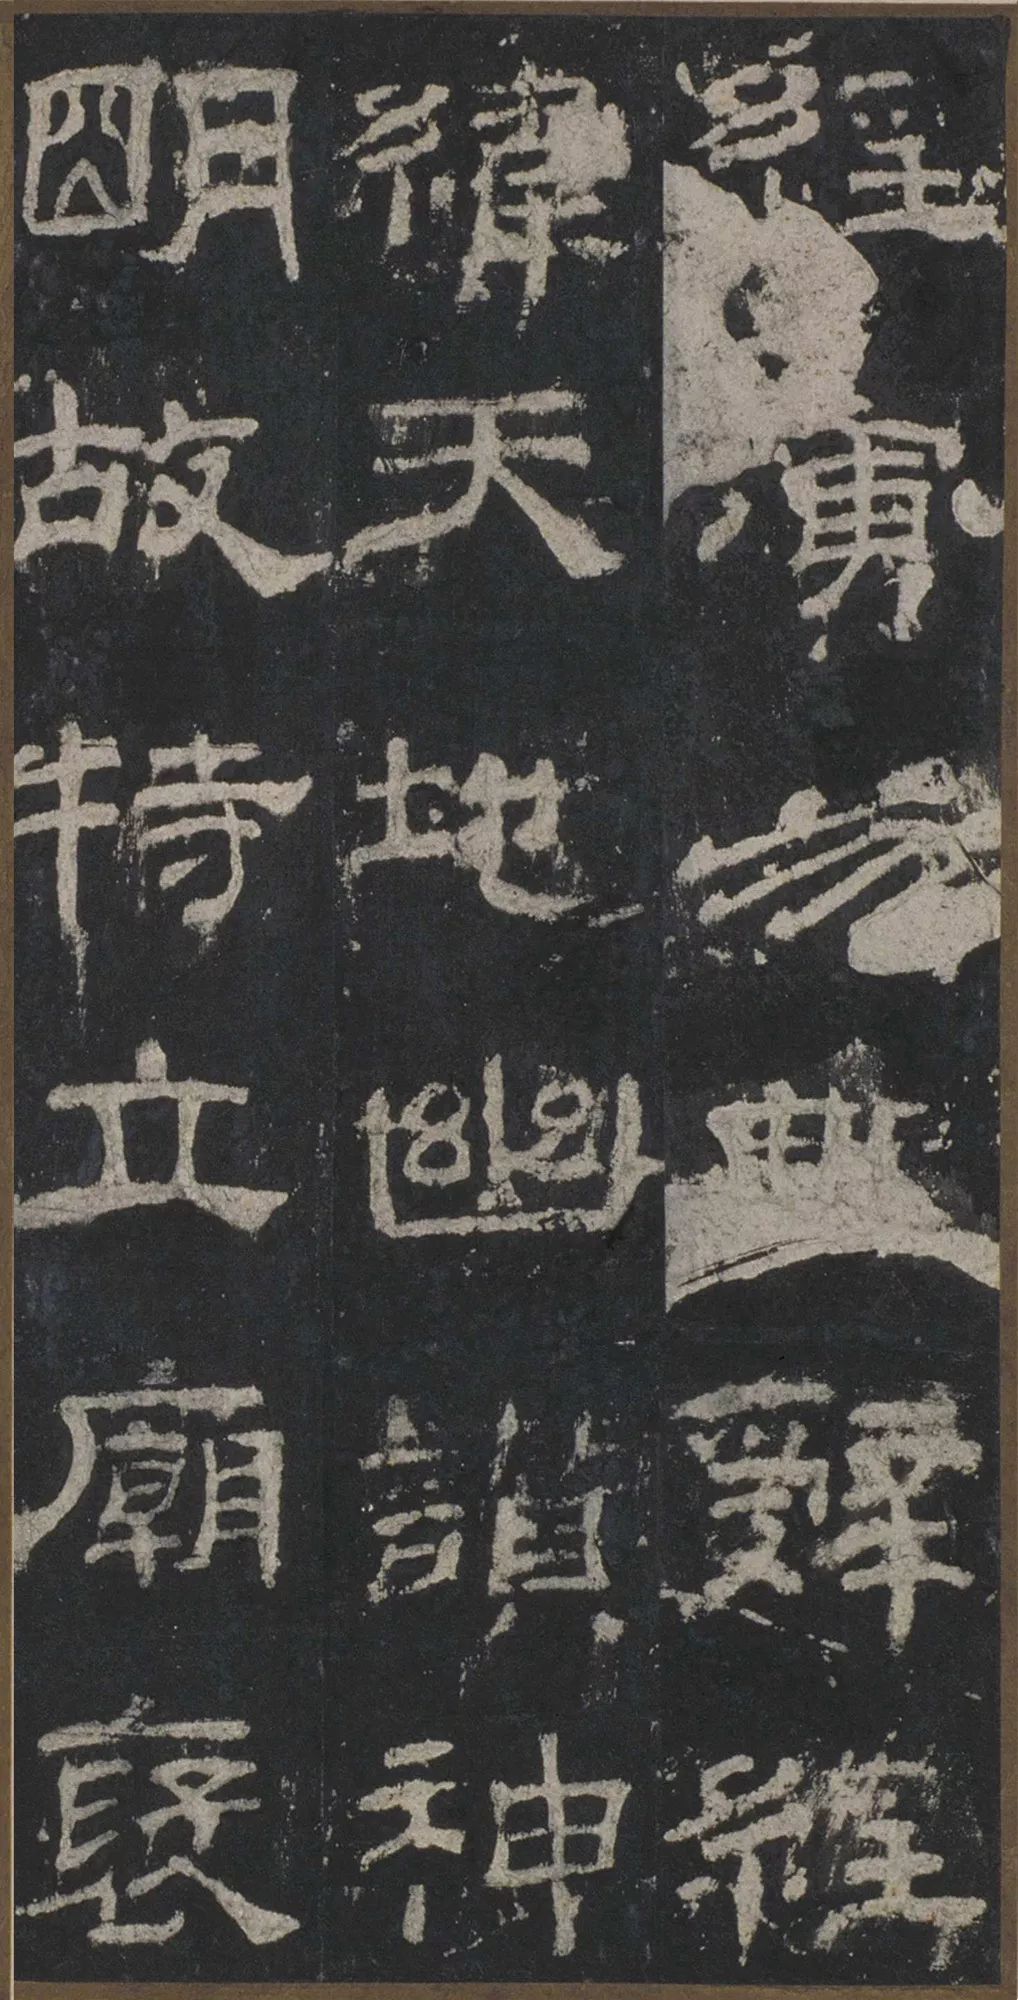 經演易繫辭經
緯天地幽讚神
明故特立廟褒